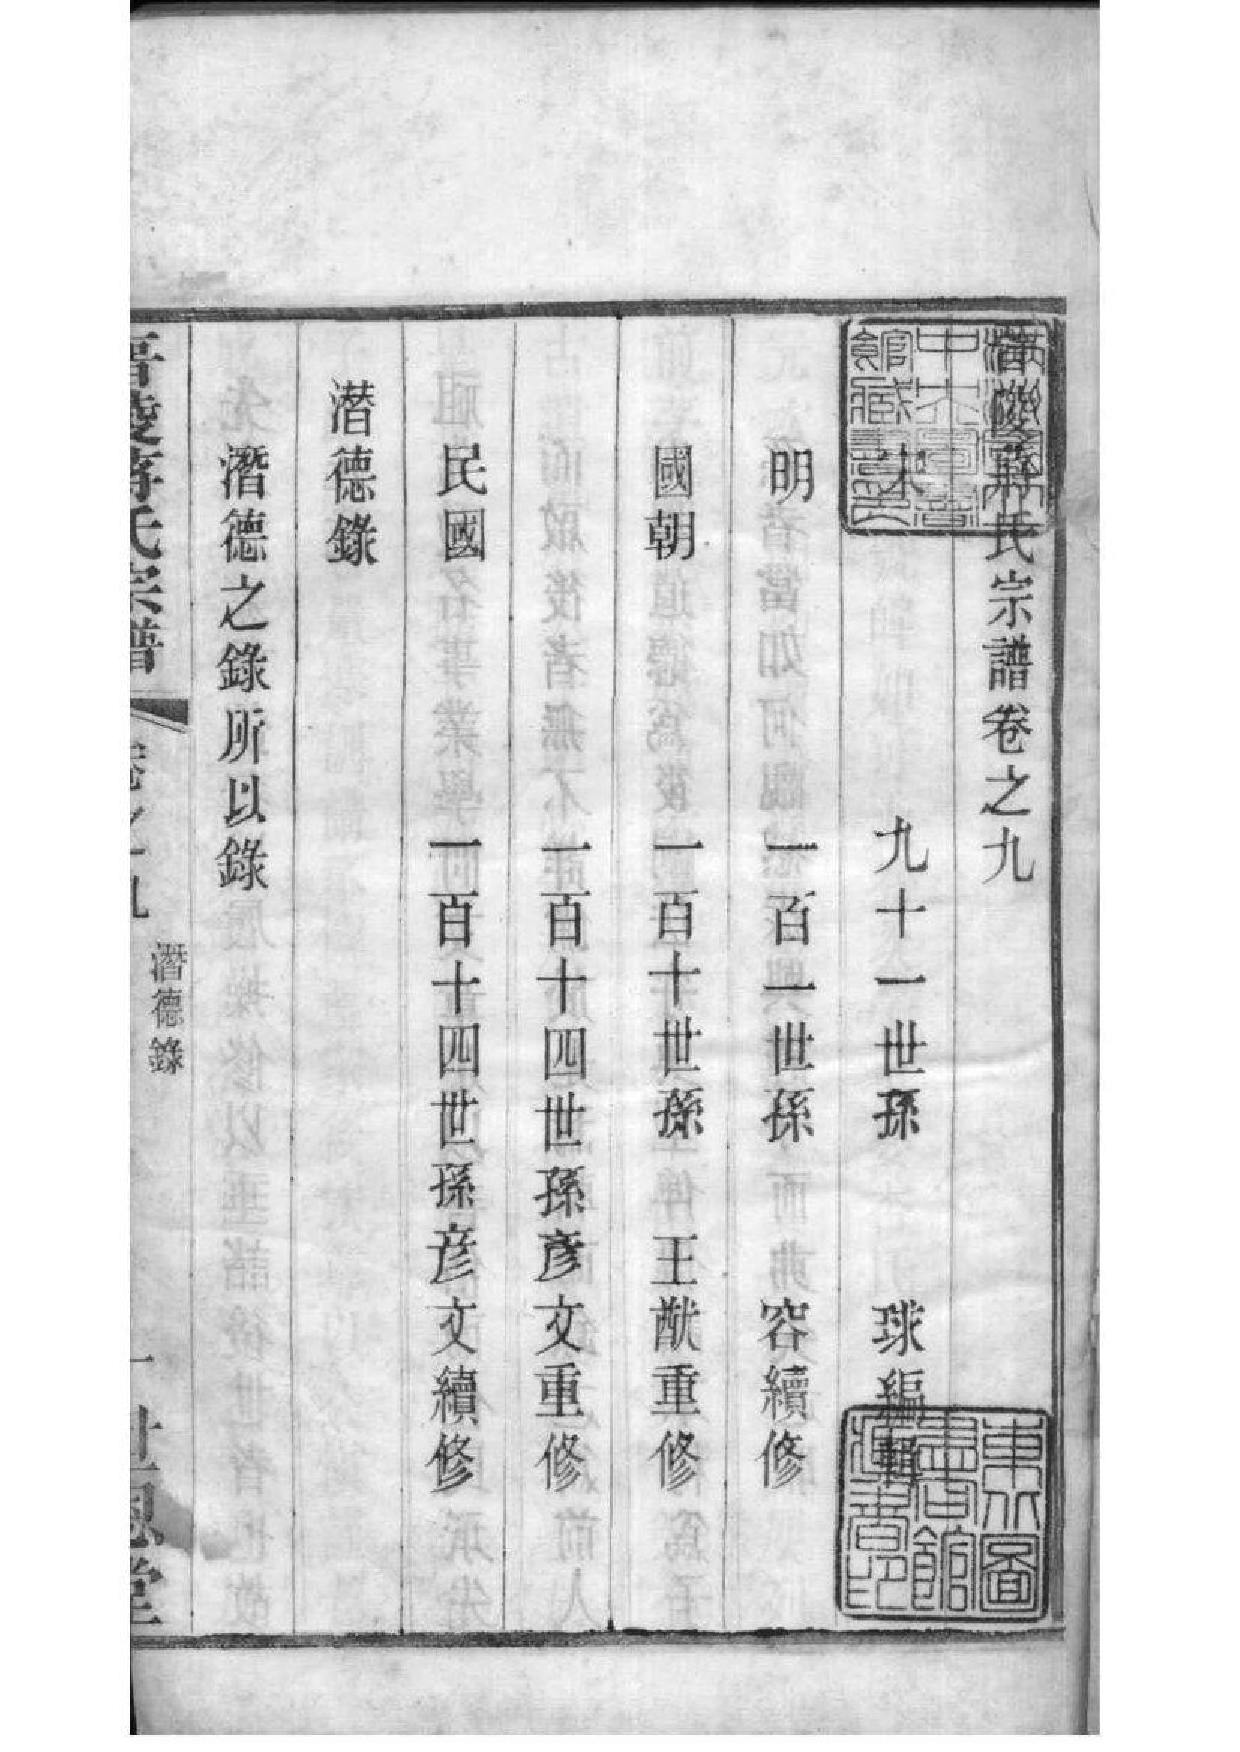 晉陵蔣氏宗譜卷之九
宋 九十一世孫 球編輯
明 一百一世孫 容續修
國朝 一百十世孫 王猷重修
一百十四世孫彥文重修
民國 一百十四世孫彥文續修
潛德錄
潛德之錄所以錄
晉陵蔣氏宗譜 卷之九 潛德錄 一 世恩堂